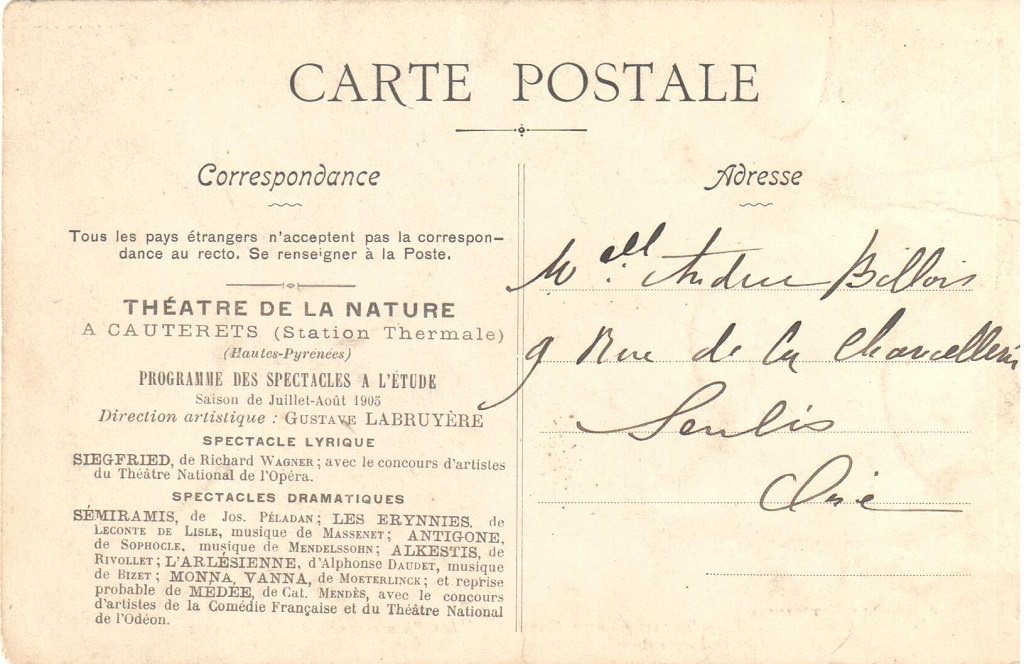 CARTE POSTALE
Correspondance
Tous les pays étrangers n'acceptent pas la correspon-
dance au recto. Se renseigner à la Poste.
THÉATRE DE LA NATURE
A CAUTERETS (Station Thermale)
(Hautes-Pyrénées)
PROGRAMME DES SPECTACLES A L'ÉTUDE
Saison de Juillet-Août 1905
Direction artistique : GUSTAVE LABRUYÈRE
SPECTACLE LYRIQUE
SIEGFRIED, de Richard WAGNER ; avec le concours d'artistes
du Théâtre National de l'Opéra.
SPECTACLES DRAMATIQUES
SÉMIRAMIS, de Jos. PÉLADAN ; LES ERYNNIES, de
LECONTE DE LISLE, musique de MASSENET ; ANTIGONE,
de SOPHOCLE, musique de MENDELSSOHN ; ALKESTIS, de
RIVOLLET ; L'ARLÉSIENNE, d'Alphonse DAUDET, musique
de BIZET ; MONNA VANNA, de MOETERLINCK ; et reprise
probable de MÉDÉE, de Cat. MENDÈS, avec le concours
d'artistes de la Comédie Française et du Théâtre National
de l'Odéon.
Adresse
Melle Andree Billois
9 Rue de la Chancellerie
Senlis
Oise